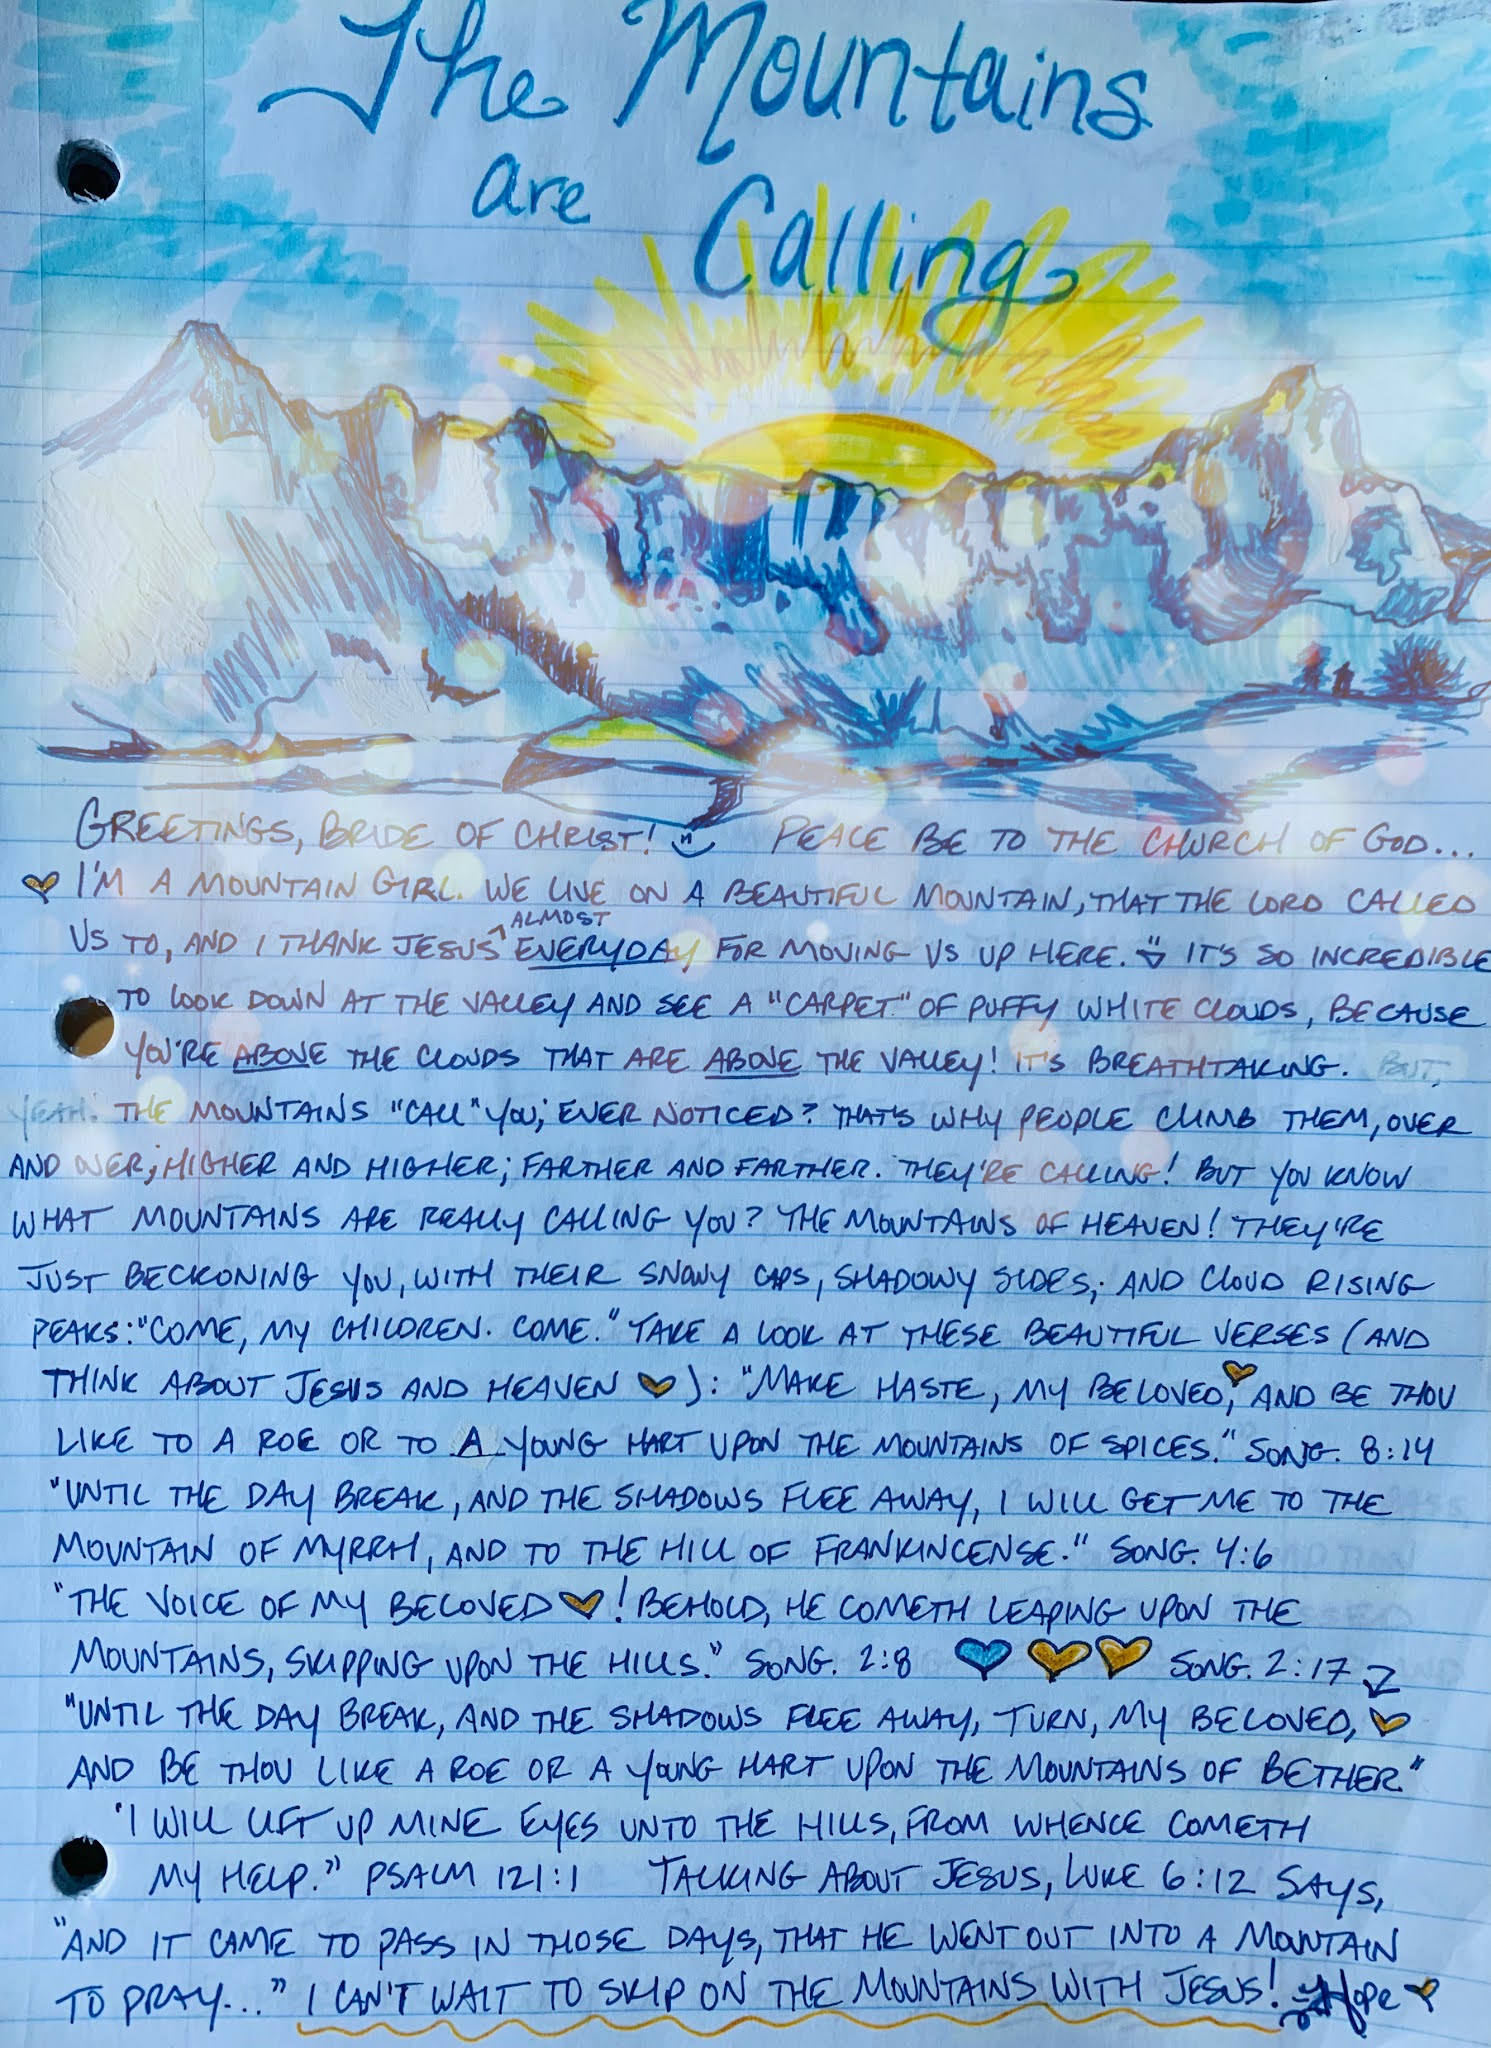 The Mountains
are Calling
GREETINGS, BRIDE OF CHRIST! PEACE BE TO THE CHURCH OF GOD...
I'M A MOUNTAIN GIRL. WE LIVE ON A BEAUTIFUL MOUNTAIN, THAT THE LORD CALLED
US TO, AND I THANK JESUS ^ALMOST EVERYDAY FOR MOVING US UP HERE. IT'S SO INCREDIBLE
TO LOOK DOWN AT THE VALLEY AND SEE A "CARPET" OF PUFFY WHITE CLOUDS, BECAUSE
YOU'RE ABOVE THE CLOUDS THAT ARE ABOVE THE VALLEY! IT'S BREATHTAKING. BUT,
YEAH. THE MOUNTAINS "CALL" YOU; EVER NOTICED? THAT'S WHY PEOPLE CLIMB THEM, OVER
AND OVER; HIGHER AND HIGHER; FARTHER AND FARTHER. THEY'RE CALLING! BUT YOU KNOW
WHAT MOUNTAINS ARE REALLY CALLING YOU? THE MOUNTAINS OF HEAVEN! THEY'RE
JUST BECKONING YOU, WITH THEIR SNOWY CAPS, SHADOWY SIDES; AND CLOUD RISING
PEAKS: "COME, MY CHILDREN. COME." TAKE A LOOK AT THESE BEAUTIFUL VERSES (AND
THINK ABOUT JESUS AND HEAVEN): "MAKE HASTE, MY BELOVED, AND BE THOU
LIKE TO A ROE OR TO A YOUNG HART UPON THE MOUNTAINS OF SPICES." SONG. 8:14
"UNTIL THE DAY BREAK, AND THE SHADOWS FLEE AWAY, I WILL GET ME TO THE
MOUNTAIN OF MYRRH, AND TO THE HILL OF FRANKINCENSE." SONG. 4:6
"THE VOICE OF MY BELOVED! BEHOLD, HE COMETH LEAPING UPON THE
MOUNTAINS, SKIPPING UPON THE HILLS." SONG. 2:8 SONG. 2:17
"UNTIL THE DAY BREAK, AND THE SHADOWS FLEE AWAY, TURN, MY BELOVED,
AND BE THOU LIKE A ROE OR A YOUNG HART UPON THE MOUNTAINS OF BETHER."
"I WILL LIFT UP MINE EYES UNTO THE HILLS, FROM WHENCE COMETH
MY HELP." PSALM 121:1 TALKING ABOUT JESUS, LUKE 6:12 SAYS,
"AND IT CAME TO PASS IN THOSE DAYS, THAT HE WENT OUT INTO A MOUNTAIN
TO PRAY..." I CAN'T WAIT TO SKIP ON THE MOUNTAINS WITH JESUS! Hope